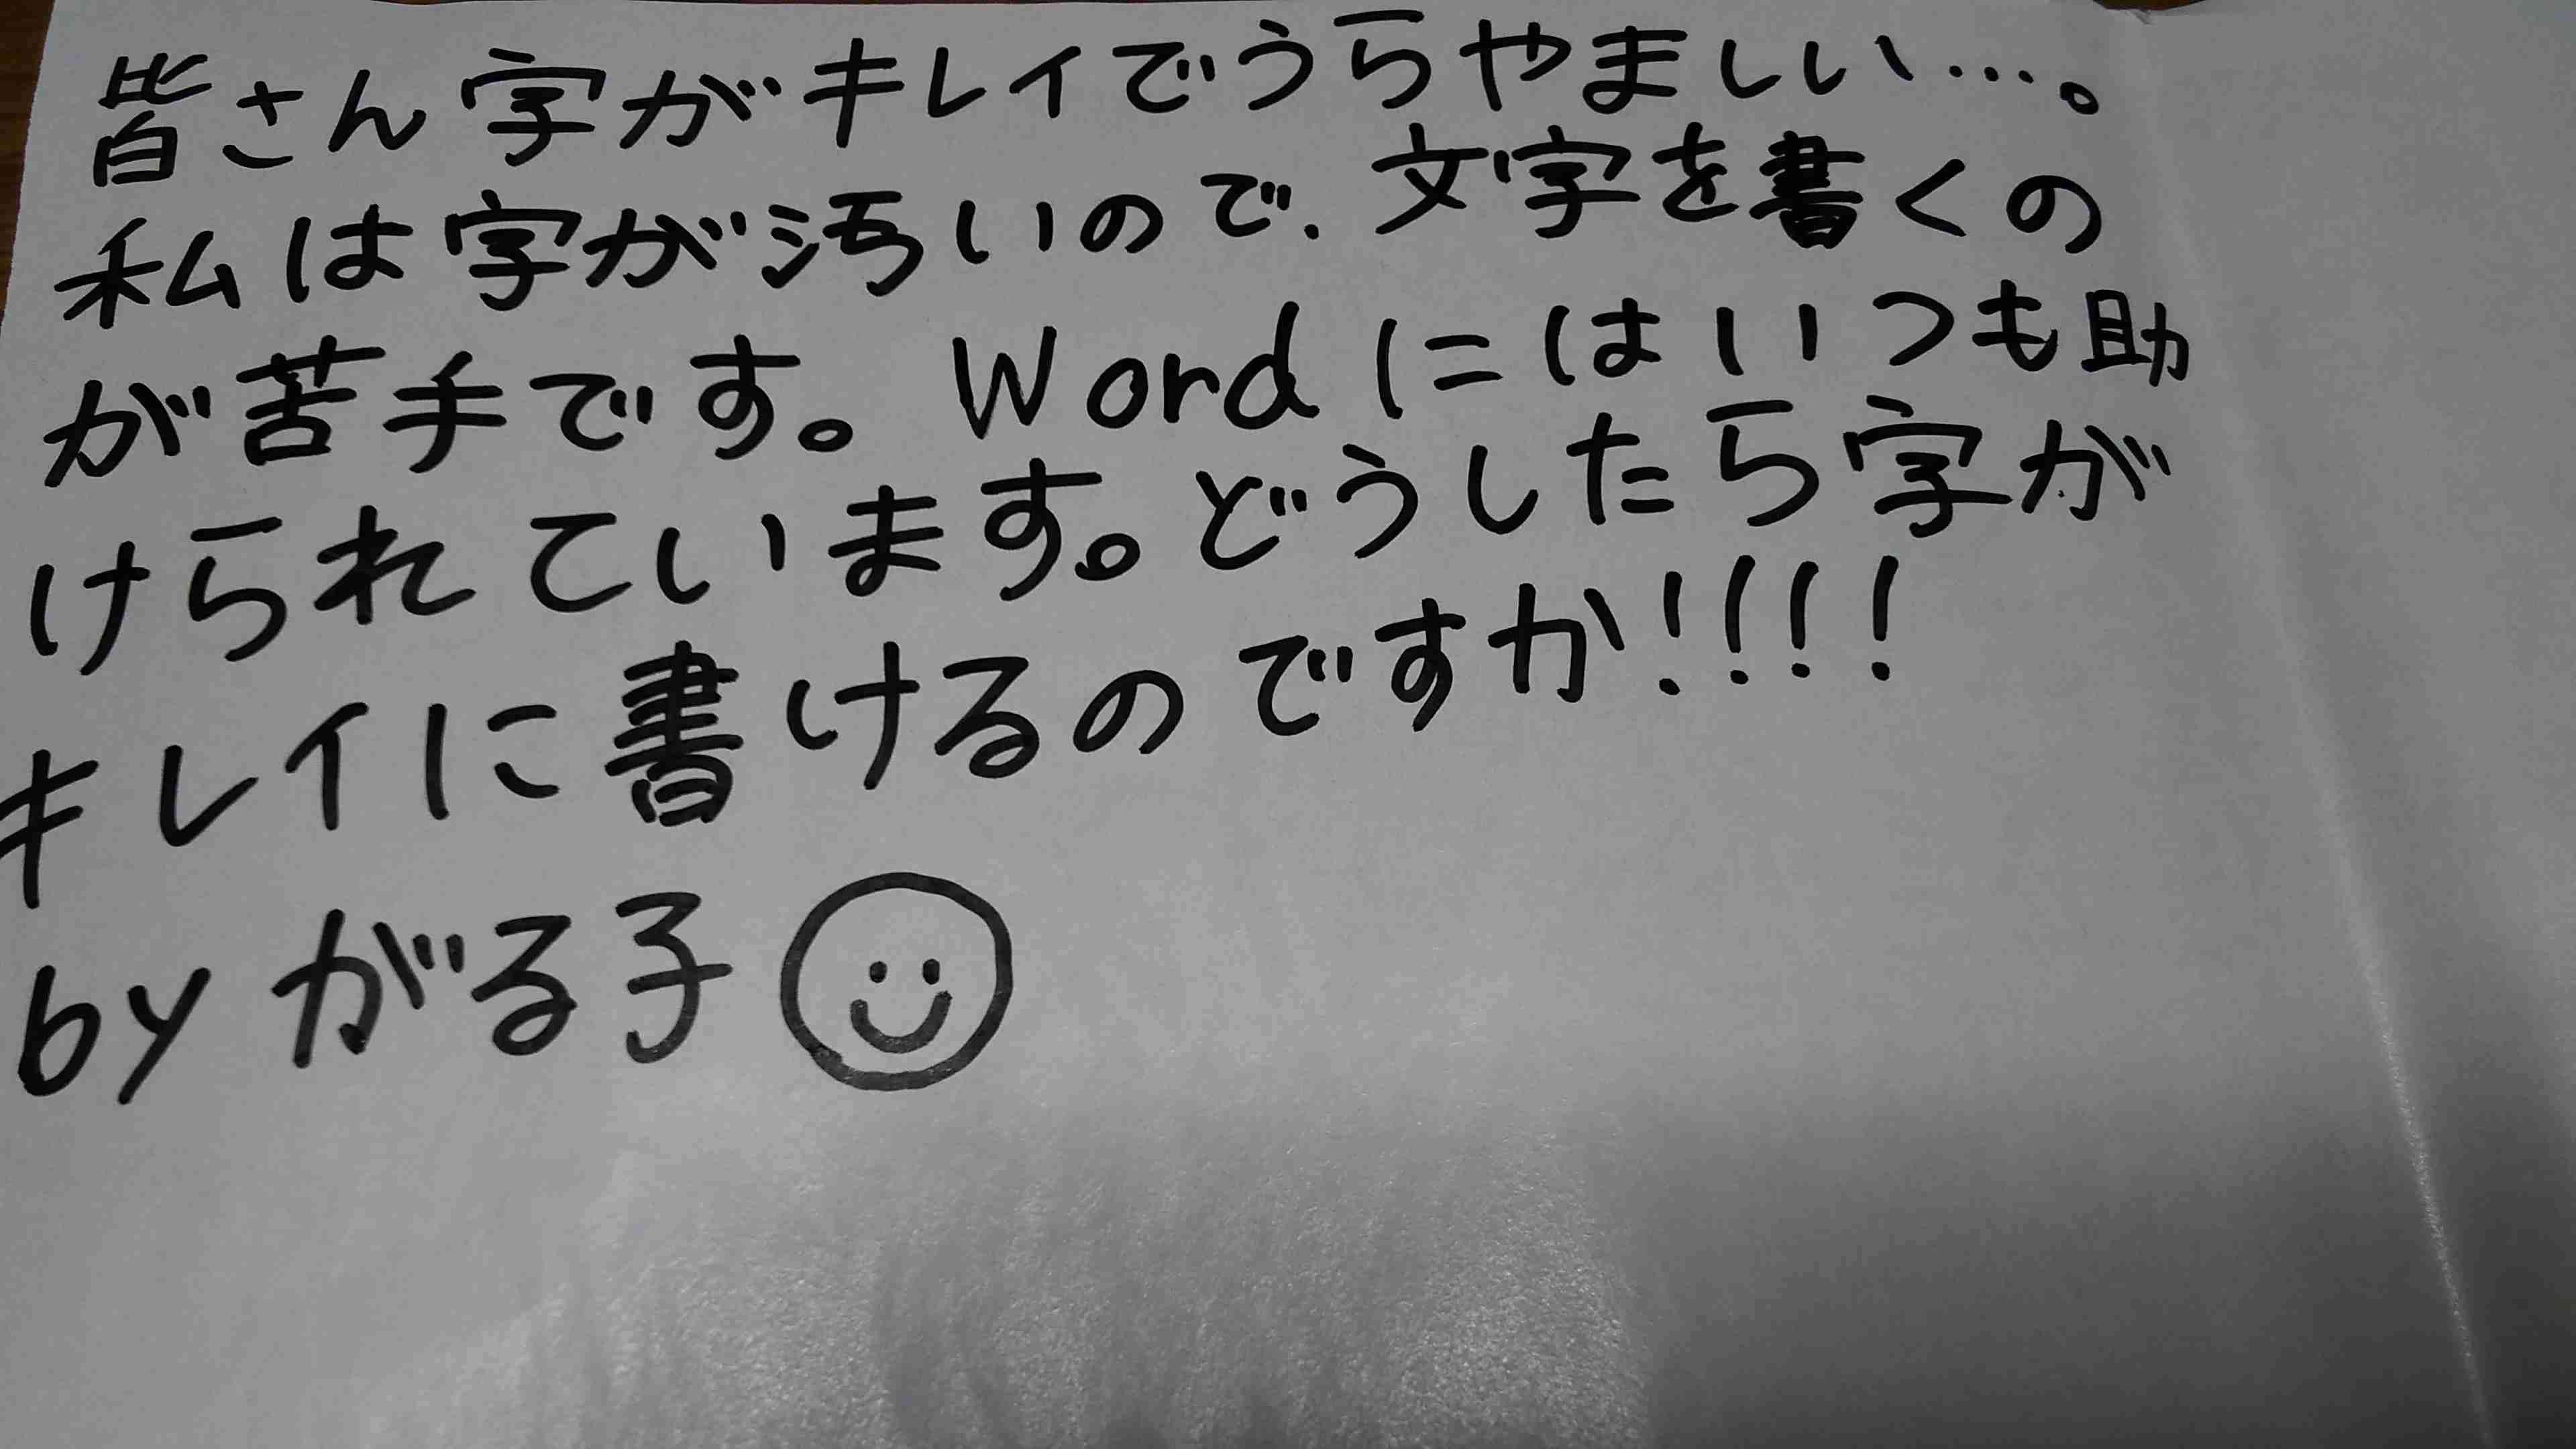 皆さん字がキレイでうらやましい…。
私は字が汚いので、文字を書くの
が苦手です。Wordにはいつも助
けられています。どうしたら字が
キレイに書けるのですか!!!!
by がる子